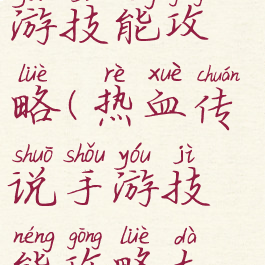 游技能攻
lüè rè xuè chuán
略(热血传
shuō shǒu yóu jì
说手游技
néng gōng lüè dà
能攻略大